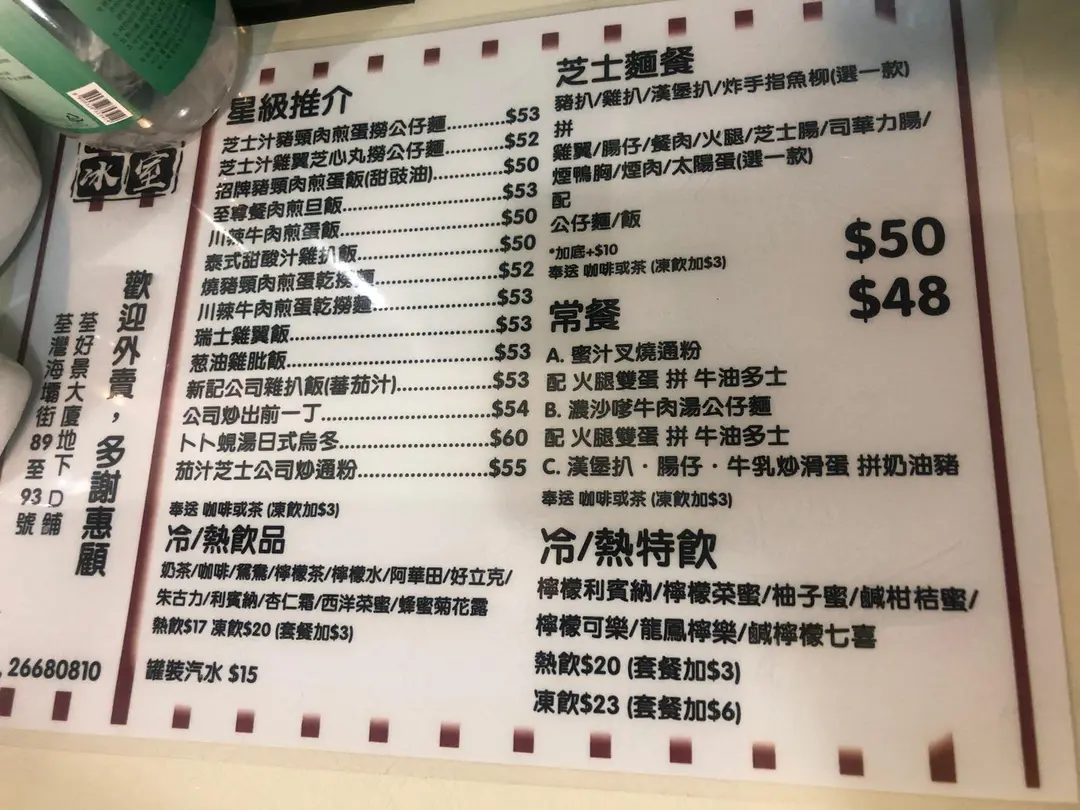 冰室
歡迎外賣，多謝惠顧
荃好景大廈地下D舖
荃灣海壩街89至93號
26680810
星級推介
芝士汁豬頸肉煎蛋撈公仔麵..........$53
芝士汁雞翼芝心丸撈公仔麵..........$52
招牌豬頸肉煎蛋飯(甜豉油)..........$50
至尊餐肉煎旦飯..........$53
川辣牛肉煎蛋飯..........$50
泰式甜酸汁雞扒飯..........$50
燒豬頸肉煎蛋乾撈麵..........$52
川辣牛肉煎蛋乾撈麵..........$53
瑞士雞翼飯..........$53
葱油雞肶飯..........$53
新記公司雜扒飯(蕃茄汁)..........$53
公司炒出前一丁..........$54
卜卜蜆湯日式烏冬..........$60
茄汁芝士公司炒通粉..........$55
奉送 咖啡或茶 (凍飲加$3)
冷/熱飲品
奶茶/咖啡/鴛鴦/檸檬茶/檸檬水/阿華田/好立克/
朱古力/利賓納/杏仁霜/西洋菜蜜/蜂蜜菊花露
熱飲$17 凍飲$20 (套餐加$3)
罐裝汽水 $15
芝士麵餐
豬扒/雞扒/漢堡扒/炸手指魚柳(選一款)
拼
雞翼/腸仔/餐肉/火腿/芝士腸/司華力腸/
煙鴨胸/煙肉/太陽蛋(選一款)
配
公仔麵/飯
$50
*加底+$10
奉送 咖啡或茶 (凍飲加$3)
常餐 $48
A. 蜜汁叉燒通粉
配 火腿雙蛋 拼 牛油多士
B. 濃沙嗲牛肉湯公仔麵
配 火腿雙蛋 拼 牛油多士
C. 漢堡扒．腸仔．牛乳炒滑蛋 拼奶油豬
奉送 咖啡或茶 (凍飲加$3)
冷/熱特飲
檸檬利賓納/檸檬菜蜜/柚子蜜/鹹柑桔蜜/
檸檬可樂/龍鳳檸樂/鹹檸檬七喜
熱飲$20 (套餐加$3)
凍飲$23 (套餐加$6)